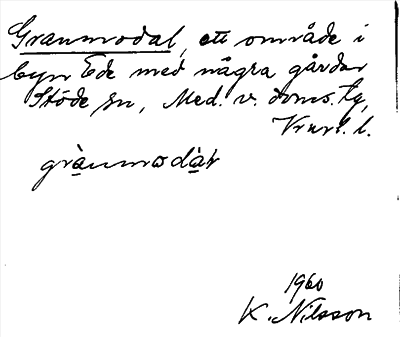 Granmodal, ett område i
byn Ede med några gårdar
Stöde sn, Med. v. doms. tg,
Vrnrl. l.
grànmodàl
1960
K. Nilsson